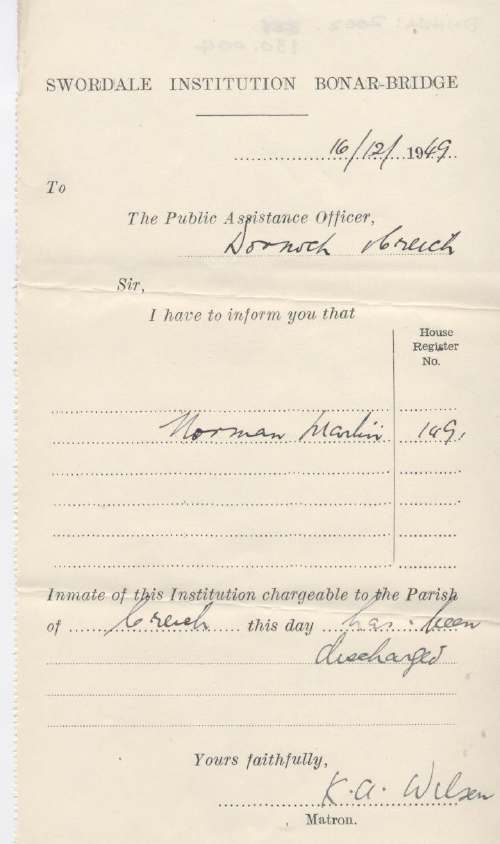 SWORDALE INSTITUTION BONAR-BRIDGE
16/12/1949
To
The Public Assistance Officer,
Dornoch & Creich
Sir,
I have to inform you that
House
Register
No.
Norman Martin 149.
Inmate of this Institution chargeable to the Parish
of Creich this day has been
discharged
Yours faithfully,
K. A. Wilson
Matron.